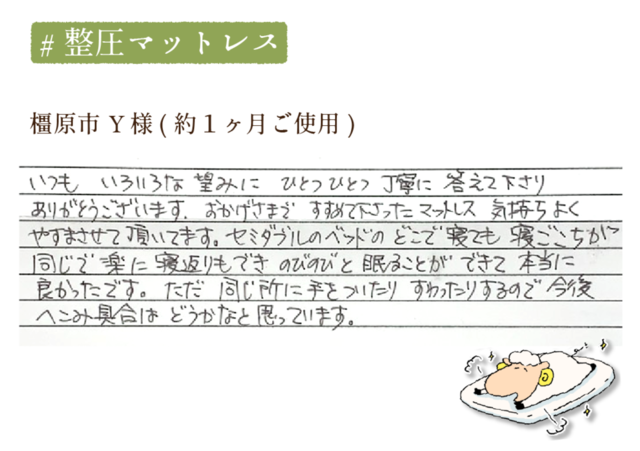 # 整圧マットレス
橿原市 Y 様 ( 約１ヶ月ご使用 )
いつも いろいろな 望みに ひとつひとつ 丁寧に 答えて下さり
ありがとうございます. おかげさまで すすめて下さったマットレス 気持ちよく
やすまさせて頂いてます。セミダブルのベッドの どこで寝ても 寝ごこちが
同じで 楽に 寝返りもでき のびのびと 眠ることが できて 本当に
良かったです。ただ 同じ所に 手をついたり すわったりするので 今後
へこみ具合は どうかなと思っています。